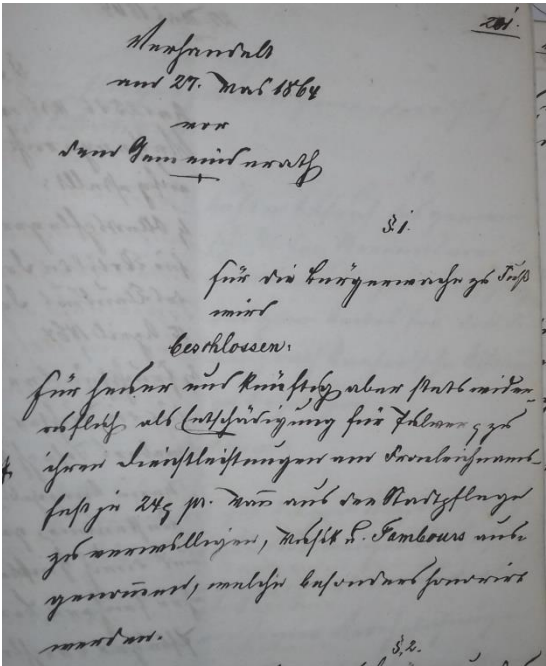 201.
Verhandelt
am 27. Mai 1864
vor
dem Gemeinderath
§. 1.
Für die Bürgerwache zu Fuß
wird
beschlossen:
Für heuer und künftig aber stets wider-
ruflich als Entschädigung für Pulver zu
ihren Dienstleistungen am Fronleichnams-
fest je 24 pr. Mann aus der Stadtpflege
zu verwilligen, Musik u. Tambours aus-
genommen, welche besonders honorirt
werden.
§. 2.